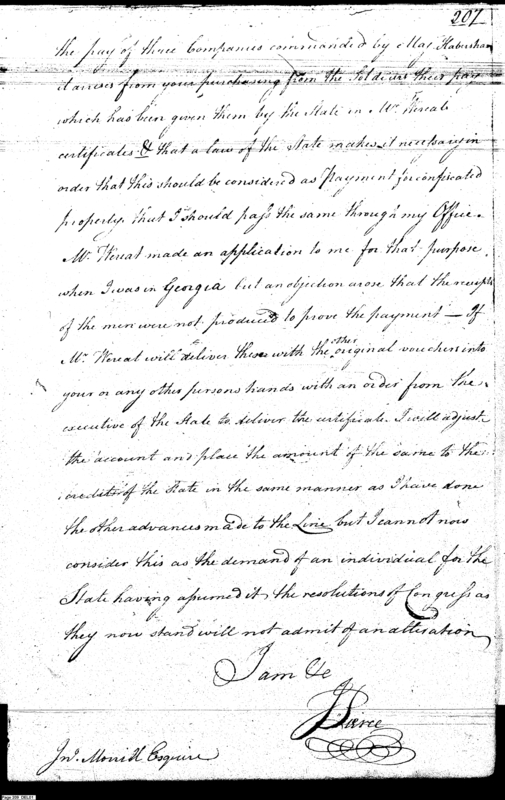 207
the pay of three Companies commanded by Maj. Habersham
it arises from your purchasing from the Soldiers their pay
which has been given them by the State in Mr. Wereat
certificates & that a law of the State makes it necessary in
order that this should be considered as Payment for confiscated
property, that I should pass the same through my Office.
Mr. Wereat made an application to me for that purpose
when I was in Georgia but an objection arose that the receipts
of the men were not produced to prove the payment — If
Mr. Wereat will deliver these with the other original vouchers into
your or any other persons hands with an order from the
executive of the State to deliver the certificate. I will adjust
the account and place the amount of the same to the
credit of the State in the same manner as I have done
the other advances made to the Line but I cannot now
consider this as the demand of an individual for the
State having assumed it, the resolutions of Congress as
they now stand will not admit of an altisation
I am &c
J Pierce
Jno. Esquire